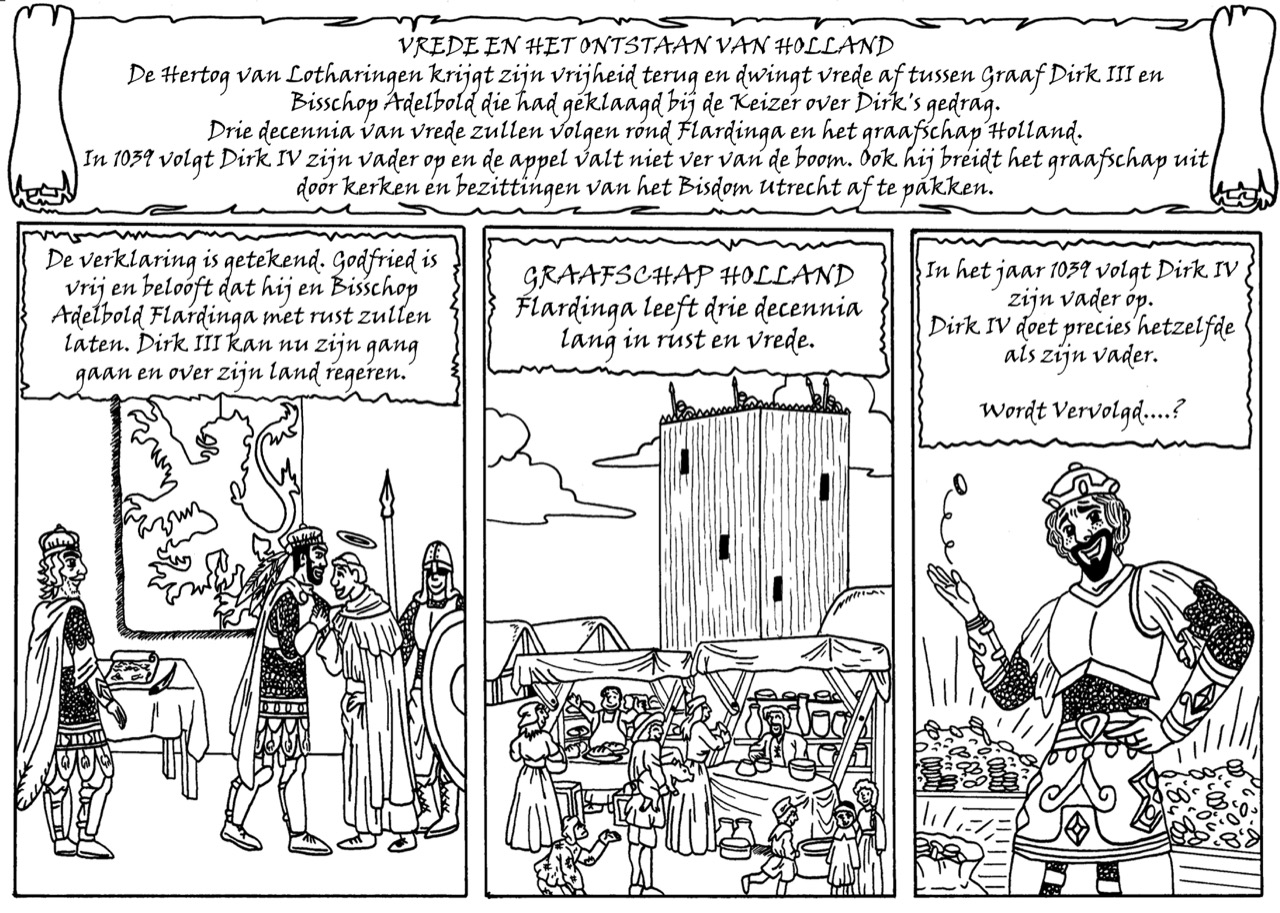 VREDE EN HET ONTSTAAN VAN HOLLAND
De Hertog van Lotharingen krijgt zijn vrijheid terug en dwingt vrede af tussen Graaf Dirk III en
Bisschop Adelbold die had geklaagd bij de Keizer over Dirk's gedrag.
Drie decennia van vrede zullen volgen rond Flardinga en het graafschap Holland.
In 1039 volgt Dirk IV zijn vader op en de appel valt niet ver van de boom. Ook hij breidt het graafschap uit
door kerken en bezittingen van het Bisdom Utrecht af te pakken.
De verklaring is getekend. Godfried is
vrij en belooft dat hij en Bisschop
Adelbold Flardinga met rust zullen
laten. Dirk III kan nu zijn gang
gaan en over zijn land regeren.
GRAAFSCHAP HOLLAND
Flardinga leeft drie decennia
lang in rust en vrede.
In het jaar 1039 volgt Dirk IV
zijn vader op.
Dirk IV doet precies hetzelfde
als zijn vader.
Wordt Vervolgd....?